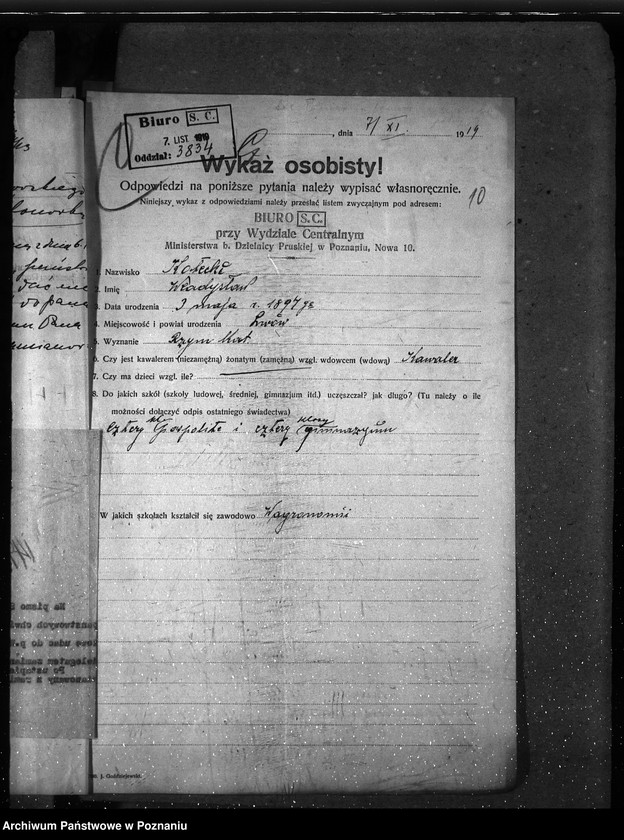 Biuro S. C.
7. LIST. 1919
Oddział: 3834
, dnia 7/XI. 1919
Wykaz osobisty!
Odpowiedzi na poniższe pytania należy wypisać własnoręcznie.
10
Niniejszy wykaz z odpowiedziami należy przesłać listem zwyczajnym pod adresem:
BIURO S. C.
przy Wydziale Centralnym
Ministerstwa b. Dzielnicy Pruskiej w Poznaniu, Nowa 10.
1. Nazwisko
2. Imię Władysław
3. Data urodzenia 3 maja r. 1897
4. Miejscowość i powiat urodzenia Lwów
5. Wyznanie Rzym Kat.
6. Czy jest kawalerem (niezamężną) żonatym (zamężną) wzgl. wdowcem (wdową) Kawaler
7. Czy ma dzieci wzgl. ile?
8. Do jakich szkół (szkoły ludowej, średniej, gimnazjum itd.) uczęszczał? jak długo? (Tu należy o ile
możności dołączyć odpis ostatniego świadectwa)
cztery i cztery klasy gimnazyum
W jakich szkołach kształcił się zawodowo
Archiwum Państwowe w Poznaniu